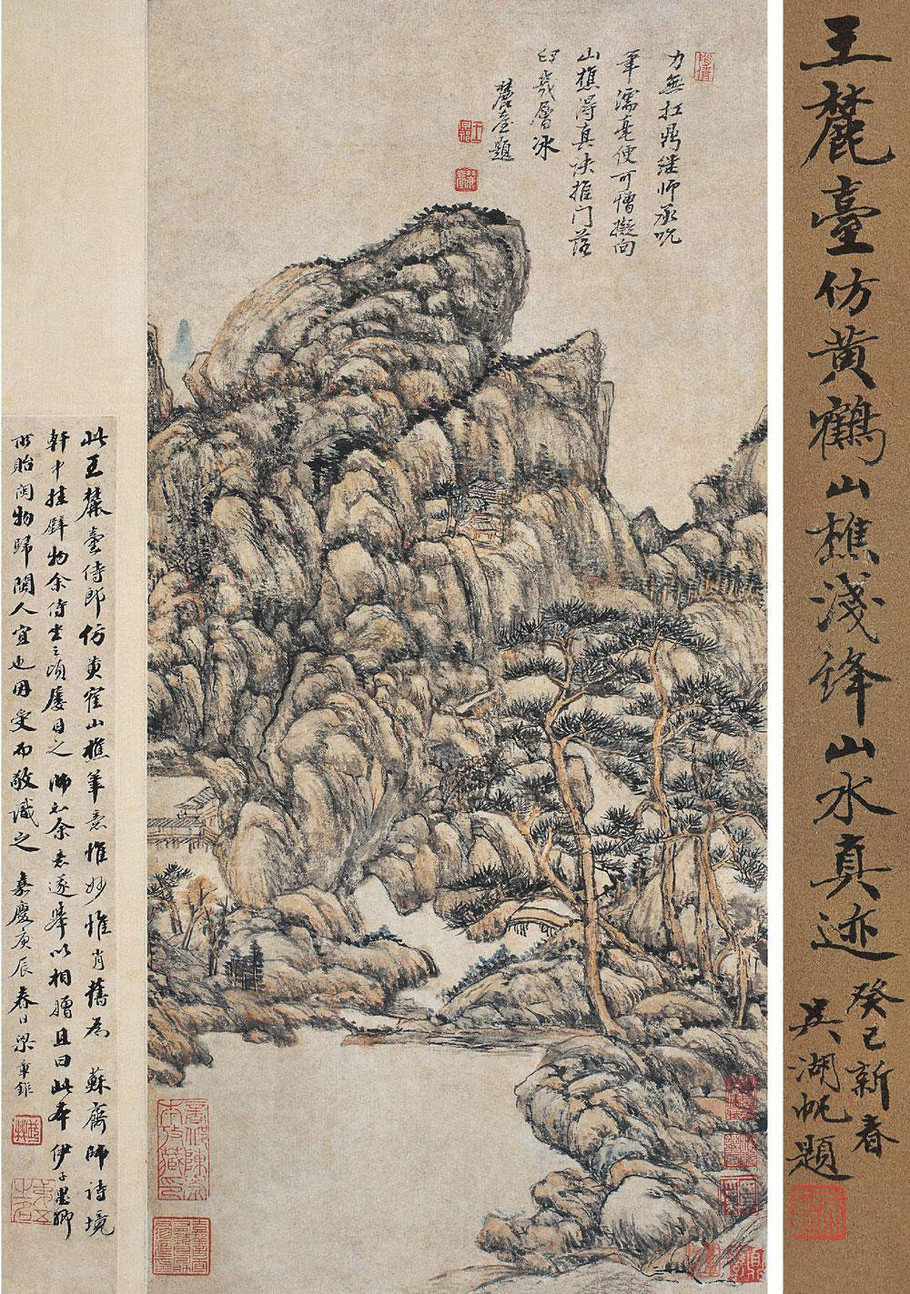 王麓臺仿黄鶴山樵淺絳山水真迹
癸巳新春
吳湖帆題
力無扛鼎繼師承吮
筆濡毫使可憎擬向
山樵得真訣推門落
臼幾層冰
麓臺題
此王麓臺侍郎仿黄鶴山樵筆意惟妙惟肖舊為蘇齋師詩境
軒中挂壁物余侍坐之頃屢目之師知余意遂舉以相贈且曰此本伊子墨卿
所貽閩物歸閩人宜也因受而敬識之嘉慶庚辰春日梁章鉅